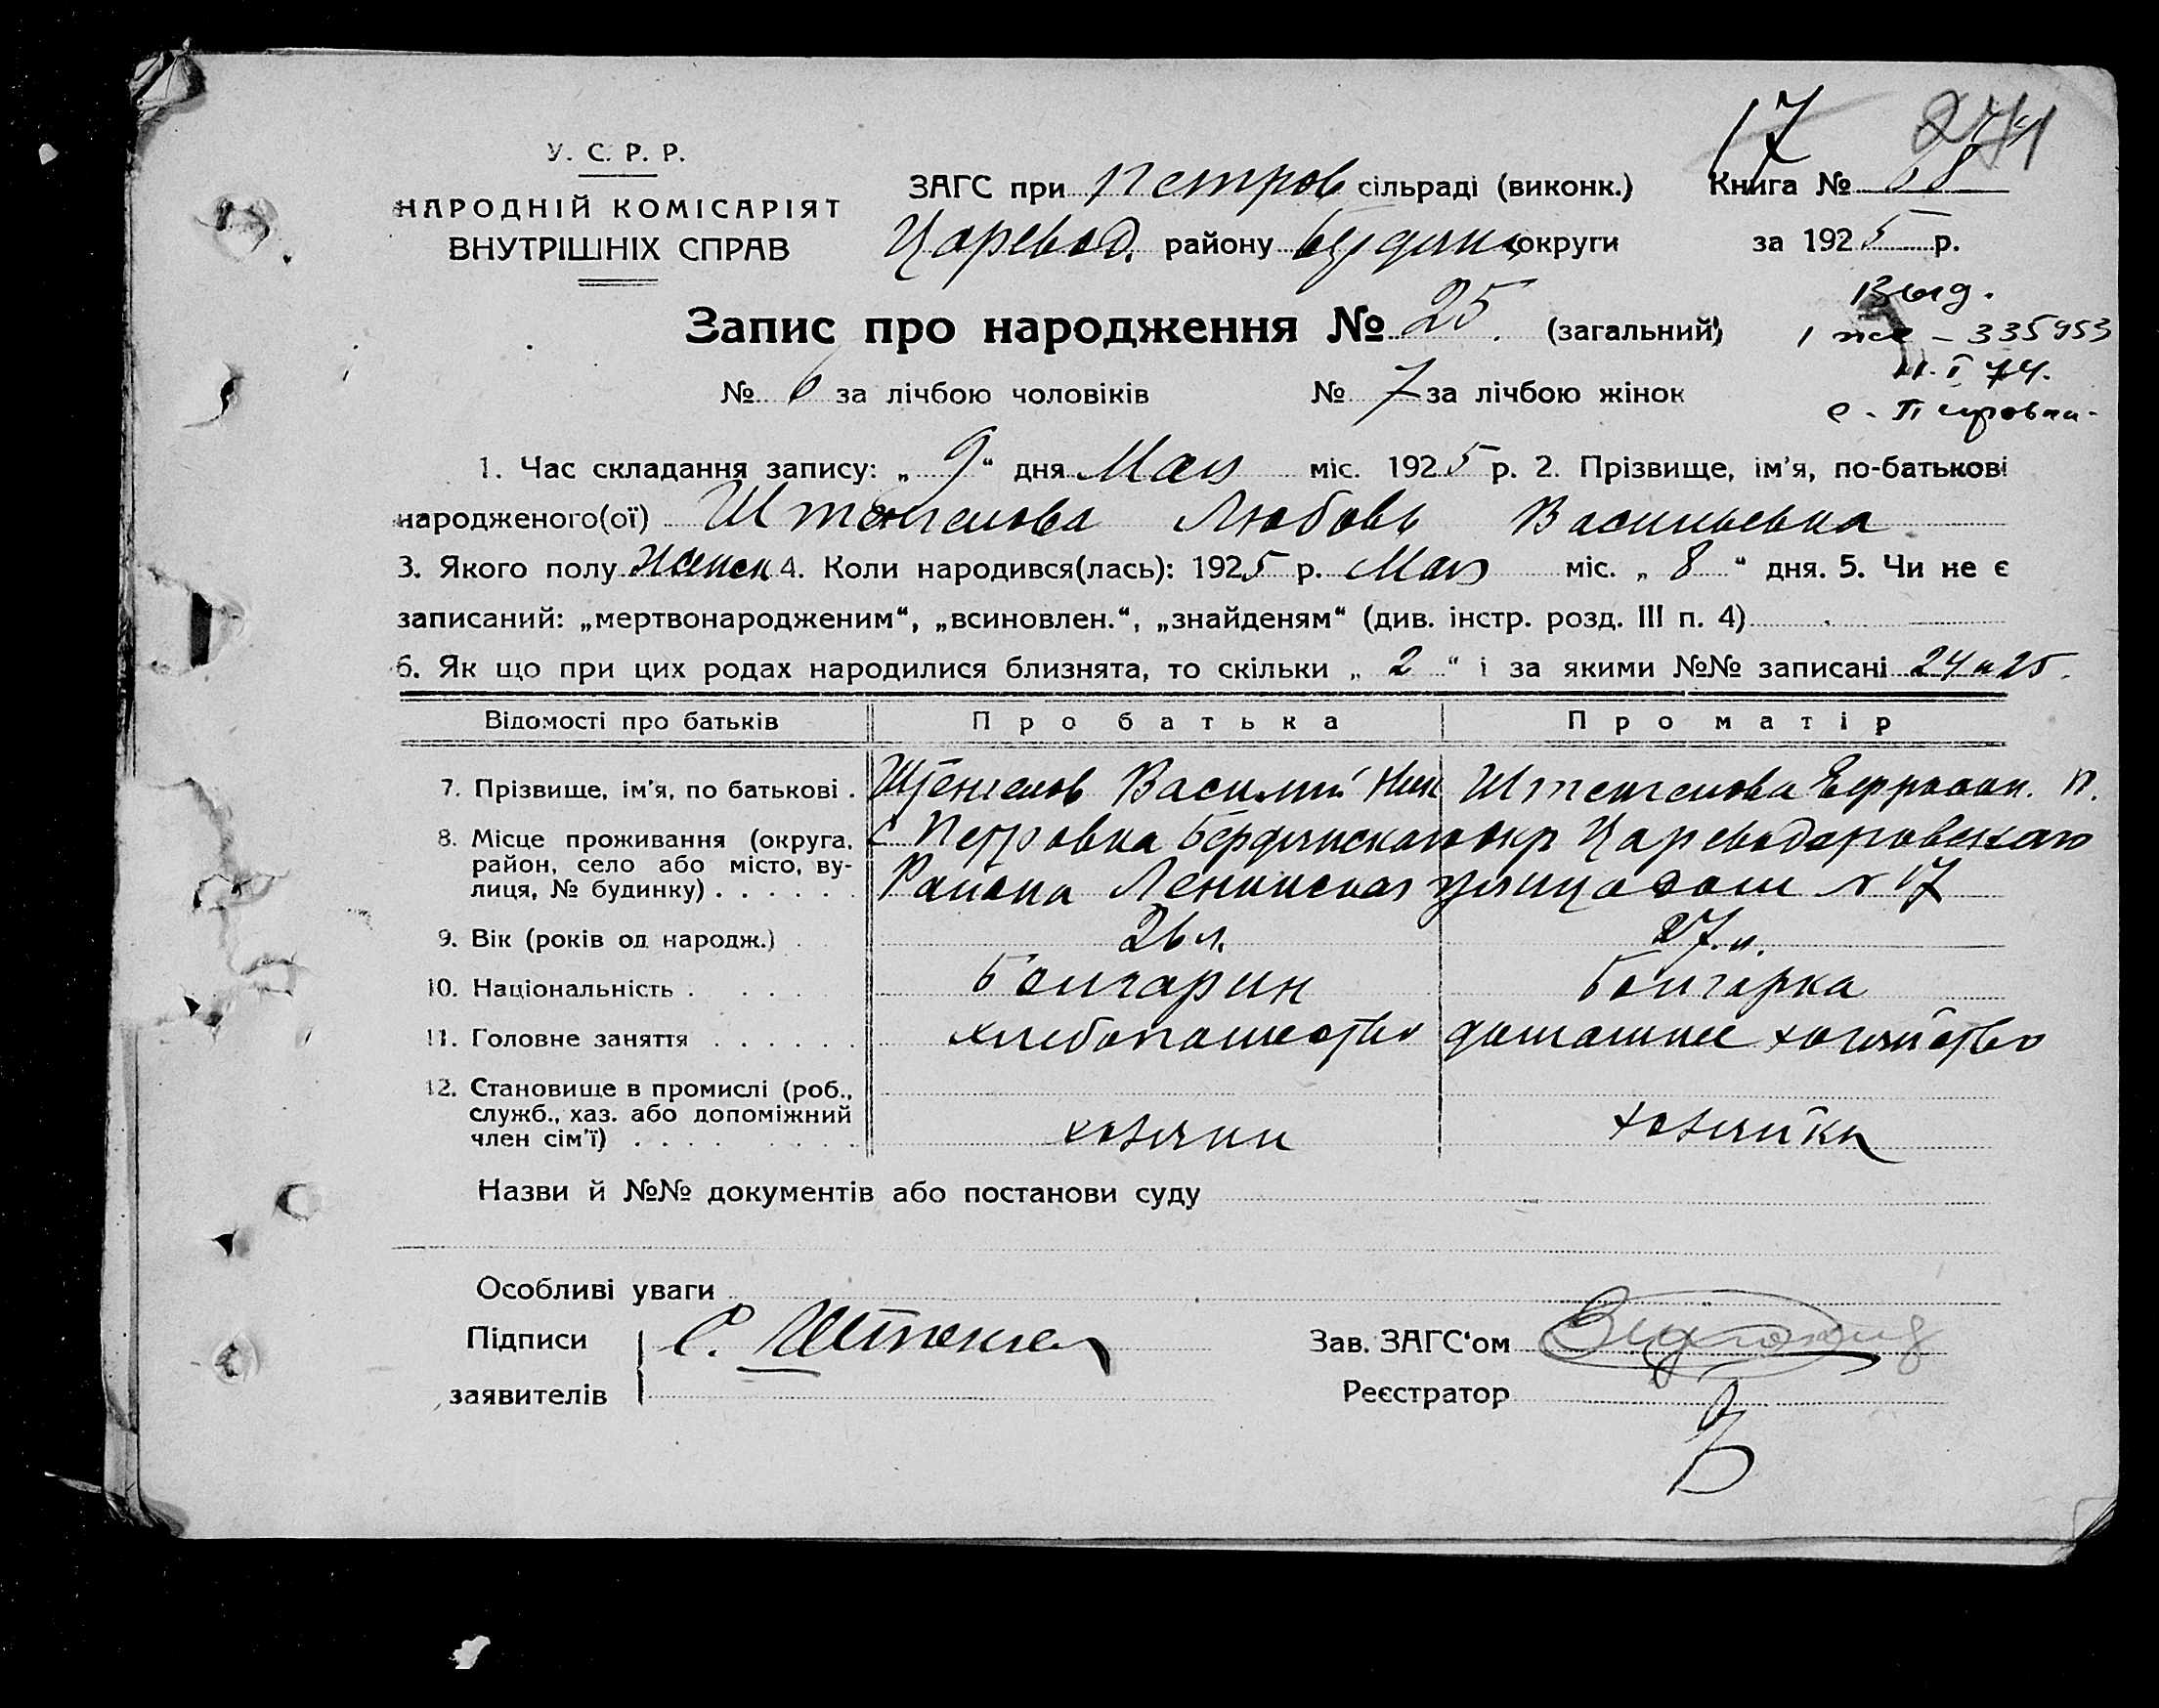 17 274
У. С. Р. Р.
НАРОДНІЙ КОМІСАРІЯТ
ВНУТРІШНІХ СПРАВ
ЗАГС при Петров сільраді (виконк.) Книга №
Царевод. району Бердянс округи за 1925 р.
Запис про народження № 25. (загальний)
Выд.
1 же – 335953
11.I 74.
с. Петровка
№ 6 за лічбою чоловіків № 7 за лічбою жінок
1. Час складання запису: „ 9 “ дня Мая міс. 1925 р. 2. Прізвище, ім’я, по-батькові
народженого(ої) Штенгелова Любовь Васильевна
3. Якого полу Женск 4. Коли народився(лась): 1925 р. Мая міс. „ 8 “ дня. 5. Чи не є
записаний: „мертвонародженим“, „всиновлен.“, „знайденям“ (див. інстр. розд. III п. 4)
6. Як що при цих родах народилися близнята, то скільки „ 2 “ і за якими №№ записані 24 и 25.
Відомості про батьків Про батька Про матір
7. Прізвище, ім’я, по батькові . Штенгелов Василий Ник Штенгелова Ефросин. П.
8. Місце проживання (округа, район, село або місто, вулиця, № будинку) . . . . . . с Петровка Бердянского окр Цареводаровского
Района Ленинская улица дом № 17
9. Вік (років од народж.) . . 26 л. 27. л.
10. Національність . . . . Болгарин Болгарка
11. Головне заняття . . . . . . хлебопашество домашнее хозяйство
12. Становище в промислі (роб.,
служб., хаз. або допоміжний
член сім’ї) . . . . . . . хозяин хозяйка
Назви й №№ документів або постанови суду
Особливі уваги
Підписи С. Штенгел Зав. ЗАГС‘ом
заявителів Реєстратор